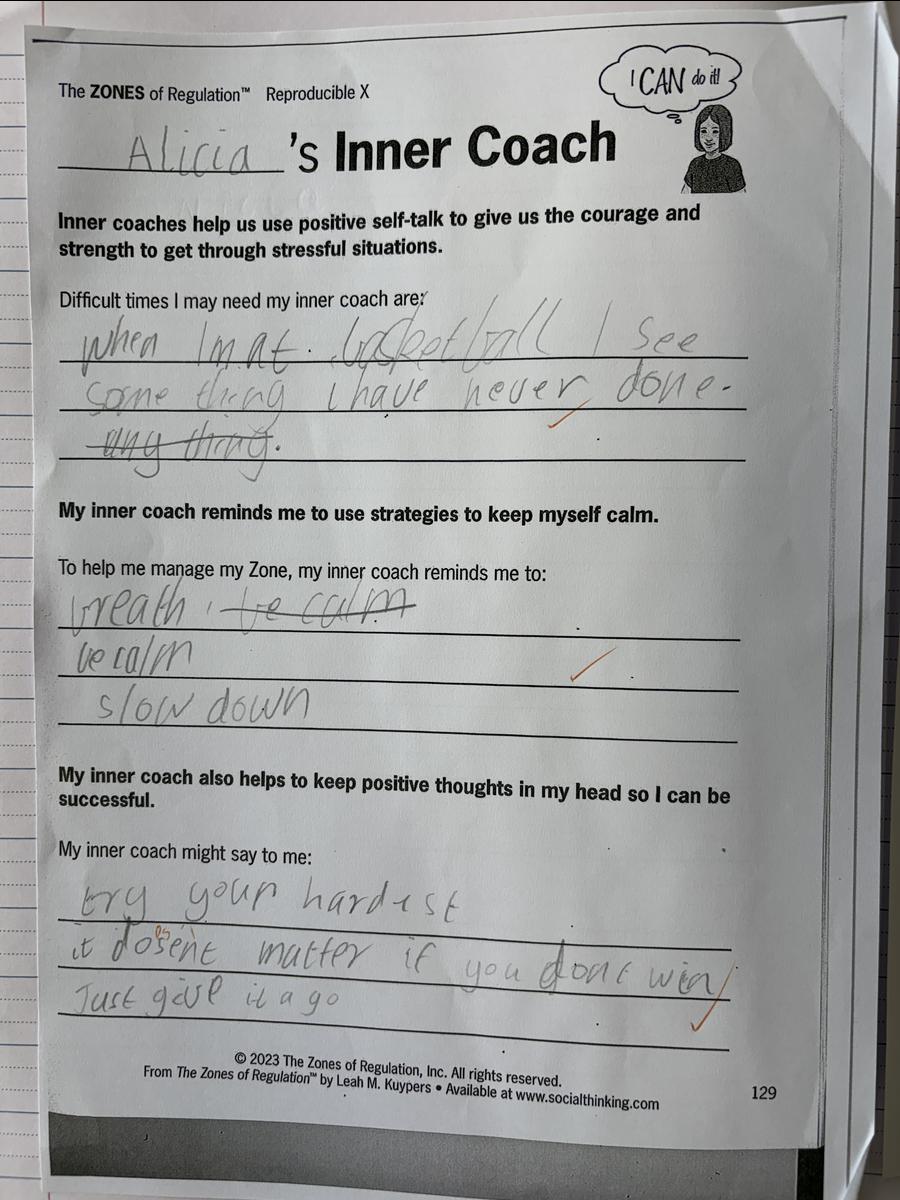 I CAN do it!
The ZONES of Regulation™ Reproducible X
Alicia 's Inner Coach
Inner coaches help us use positive self-talk to give us the courage and
strength to get through stressful situations.
Difficult times I may need my inner coach are:
When Im at. basketball I see
some thing i have never done.
any thing.
My inner coach reminds me to use strategies to keep myself calm.
To help me manage my Zone, my inner coach reminds me to:
breath, be calm
be calm
slow down
My inner coach also helps to keep positive thoughts in my head so I can be
successful.
My inner coach might say to me:
try your hardest
it dosent matter if you dont win
Just give it a go
© 2023 The Zones of Regulation, Inc. All rights reserved.
From The Zones of Regulation™ by Leah M. Kuypers • Available at www.socialthinking.com
129